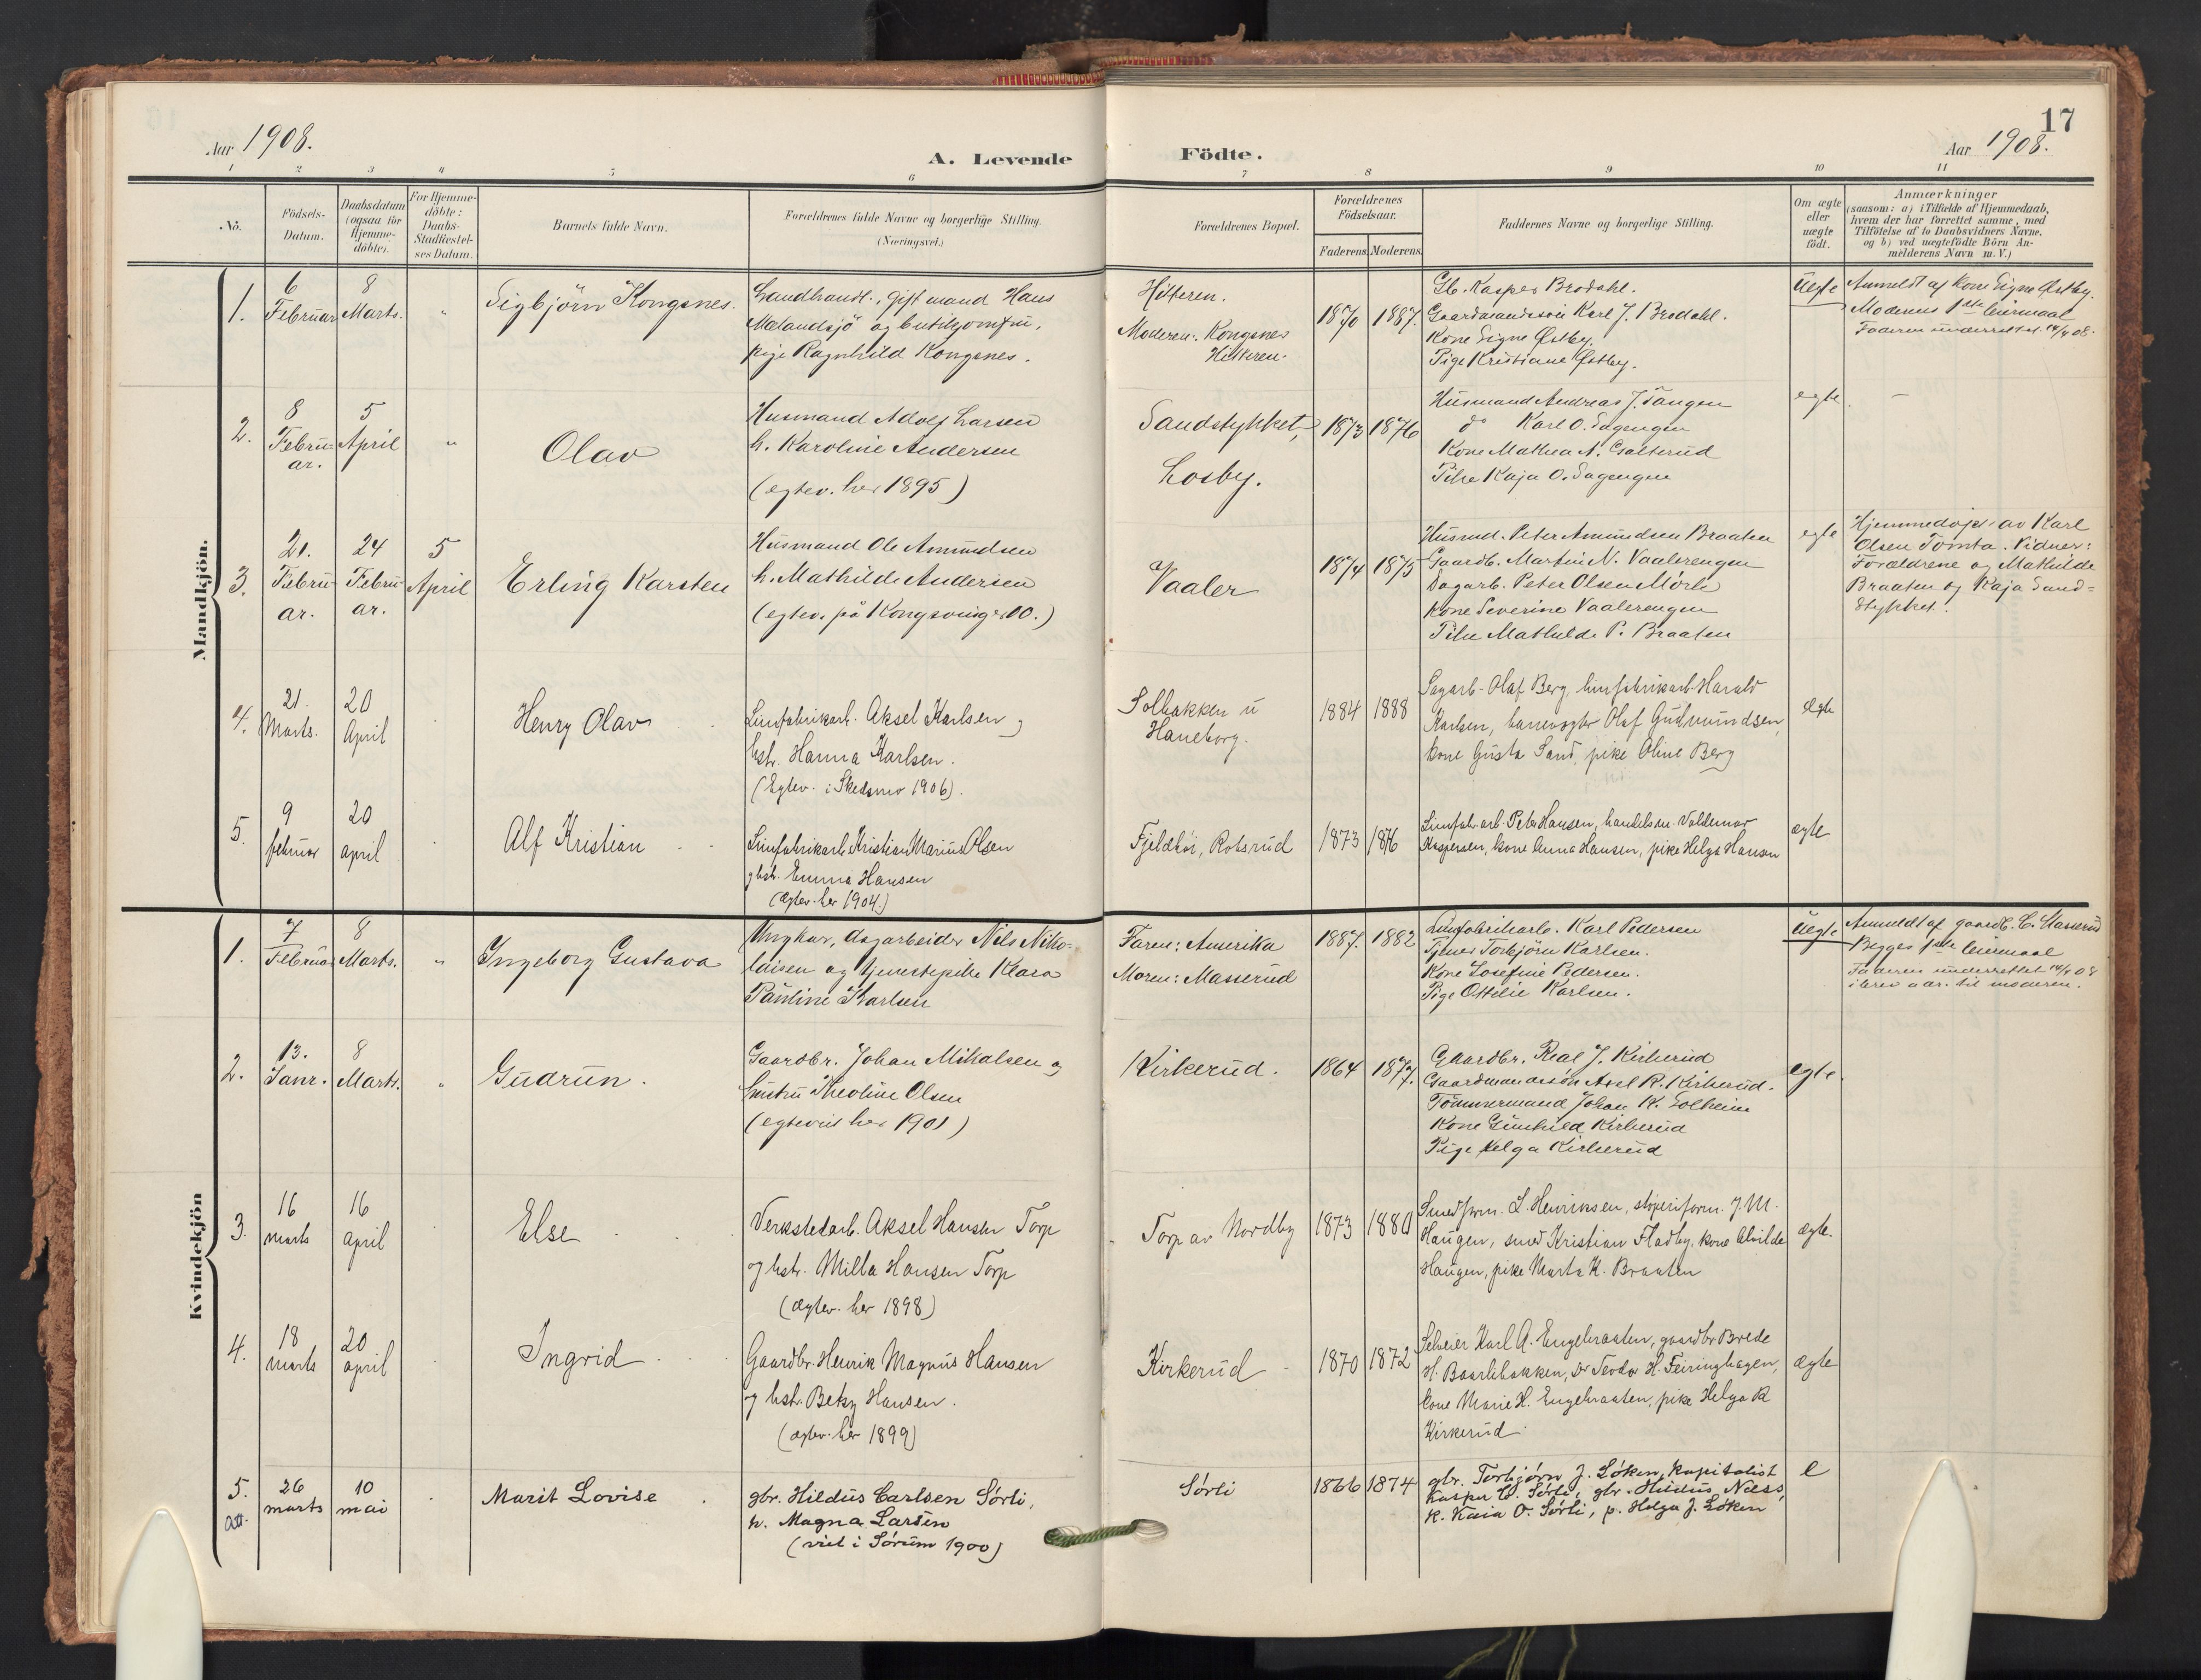 17
Aar 1908.
A. Levende
Födte.
Aar 1908.
1 2 3 4 5 6 7 8 9 10 11
No.
Födsels-
Datum.
Daabsdatum
(ogsaa for
Hjemme-
döbte).
For Hjemme-
döbte:
Daabs-
Stadfæstel-
ses Datum.
Barnets fulde Navn.
Forældrenes fulde Navne og borgerlige Stilling.
(Næringsvei.)
Forældrenes Bopæl.
Forældrenes
Födselsaar.
Faderens Moderens
Faddernes Navne og borgerlige Stilling.
Om ægte
eller
uægte
födt.
Anmærkninger
(saasom: a) i Tilfælde af Hjemmedaab,
hvem der har forrettet samme, med
Tilföielse af to Daabsvidners Navne,
og b) ved uægtefödte Börn An-
melderens Navn m. V.)
Mandkjön.
1.
6
Februar
8
Marts.
"
Sigbjörn Kongsnes.
Landhandl., gift mand Hans
Mælandsjö og butikjomfru,
pige Ragnhild Kongsnes.
Hitteren.
Moderen: Kongsnes
Hitteren.
1870 1887.
Gb. Kasper Brodahl.
Gaardmandssön Karl J. Brodahl.
Kone Signe Østby.
Pige Kristiane Østby.
Uegte
Anmeldt af Kone Signe Østby.
Moderens 1ste leiermaal
Faderen underrettet 14/4 08.
2.
8
Febru-
ar.
5
April
"
Olav
Husmand Adolf Larsen
h. Karoline Andersen
(egtev. her 1895)
Sandstykket,
Losby.
1873 1876
Husmand Andreas J. Tangen
do Karl O. Sagengen
Kone Mathea A. Galterud
Pike Kaja O. Sagengen
egte.
-
3.
21.
Febru-
ar.
24
Febru-
ar.
5
April
Erling Karsten
Husmand Ole Amundsen
h. Mathilde Andersen
(egtev. på Kongsvinger 00.)
Vaaler
1874 1875
Husmd. Peter Amundsen Braaten
Gaardb. Martin N. Vaalerengen
Dagarb. Peter Olsen Mörk
Kone Severine Vaalerengen
Pike Mathilde P. Braaten
egte
Hjemmedöpt av Karl
Olsen Tomta. Vidner:
Forældrene og Mathilde
Braaten og Kaja Sand=
stykket.
4.
21.
Marts.
20
April
Henry Olav
Limfabrikarb. Aksel Karlsen og
hstr. Hanna Karlsen.
(Egtev. i Skedsmo 1906).
Solbakken u
Haneborg.
1884 1888
Sagarb. Olaf Berg, limfabrikarb. Harald
Karlsen, Olaf Gudmundsen,
kone Gusta Sand, pike Oline Berg
Ægte
5.
9
februar
20
april
Alf Kristian
Limfabrikarb. Kristian Marius Olsen
g hstr. Emma Hansen
(Ægtev. her 1904.)
Fjeldhöi, Robsrud
1873 1876
Limfabr.arb. Peter Hansen, handelsm. Valdemar
Kaspersen, kone Anna Hansen, pike Helga Hansen
ægte
Kvindekjön
1.
7
Februar
8
Marts.
"
Ingeborg Gustava
Ungkar, dagarbeider Nils Niko-
laisen og tjenestepike Klara
Pauline Karlsen
Faren: Amerika
Moren: Masserud
1887. 1882
Limfabrikarb. Karl Pedersen
Tjener Torbjörn Karlsen.
Kone Josefine Pedersen.
Pige Ottilie Karlsen.
Uegte
Anmeldt af gaardb. C. Masserud
Begges 1ste leiermaal
Faderen underrettet 14/4 08
i brev til moderen.
2.
13.
Janr.
8
Marts.
"
Gudrun.
Gaardbr. Johan Mikalsen og
hustru Theoline Olsen
(egteviet her 1901)
Kirkerud.
1864 1877.
Gaardbr. Real J. Kirkerud
Gaardmandssön Axel R. Kirkerud.
Tömmermand Johan K. Solheim
Kone Gunhild Kirkerud
Pige Helga Kirkerud
egte.
3.
16
marts
16
april
Else
Verkstedarb. Aksel Hansen Torp
og hstr. Milla Hansen Torp
(ægtev. her 1898)
Torp av Nordby
1873 1880
Smedform. L. Henriksen, støperiform. J. M.
Haugen, smed Kristian Fladby, kone Alvilde
Haugen, pike Marta K. Braaten
ægte.
4.
18
marts
20
april
Ingrid
Gaardbr. Henrik Magnus Hansen
og hstr. Betzy Hansen.
(ægtev. her 1899)
Kirkerud
1870 1872
Selveier Karl A. Engebraaten, gaardbr Brede
H. Baarlibakken, Do Teodor H. Feiringhagen,
kone Marie H. Engebraaten, pike Helga R
Kirkerud
Ægte
5.
att.
26
marts
10
mai
Marit Lovise
gbr. Hildus Carlsen Sørli,
h. Magna Larsen
(viet i Sørum 1900)
Sørli
1866 1874
gbr. Torbjørn J. Løken, kapitalist
Kasper C. Sørli, gbr. Hildus Ness,
k. Kaia O. Sørli, p. Helga J. Løken
e